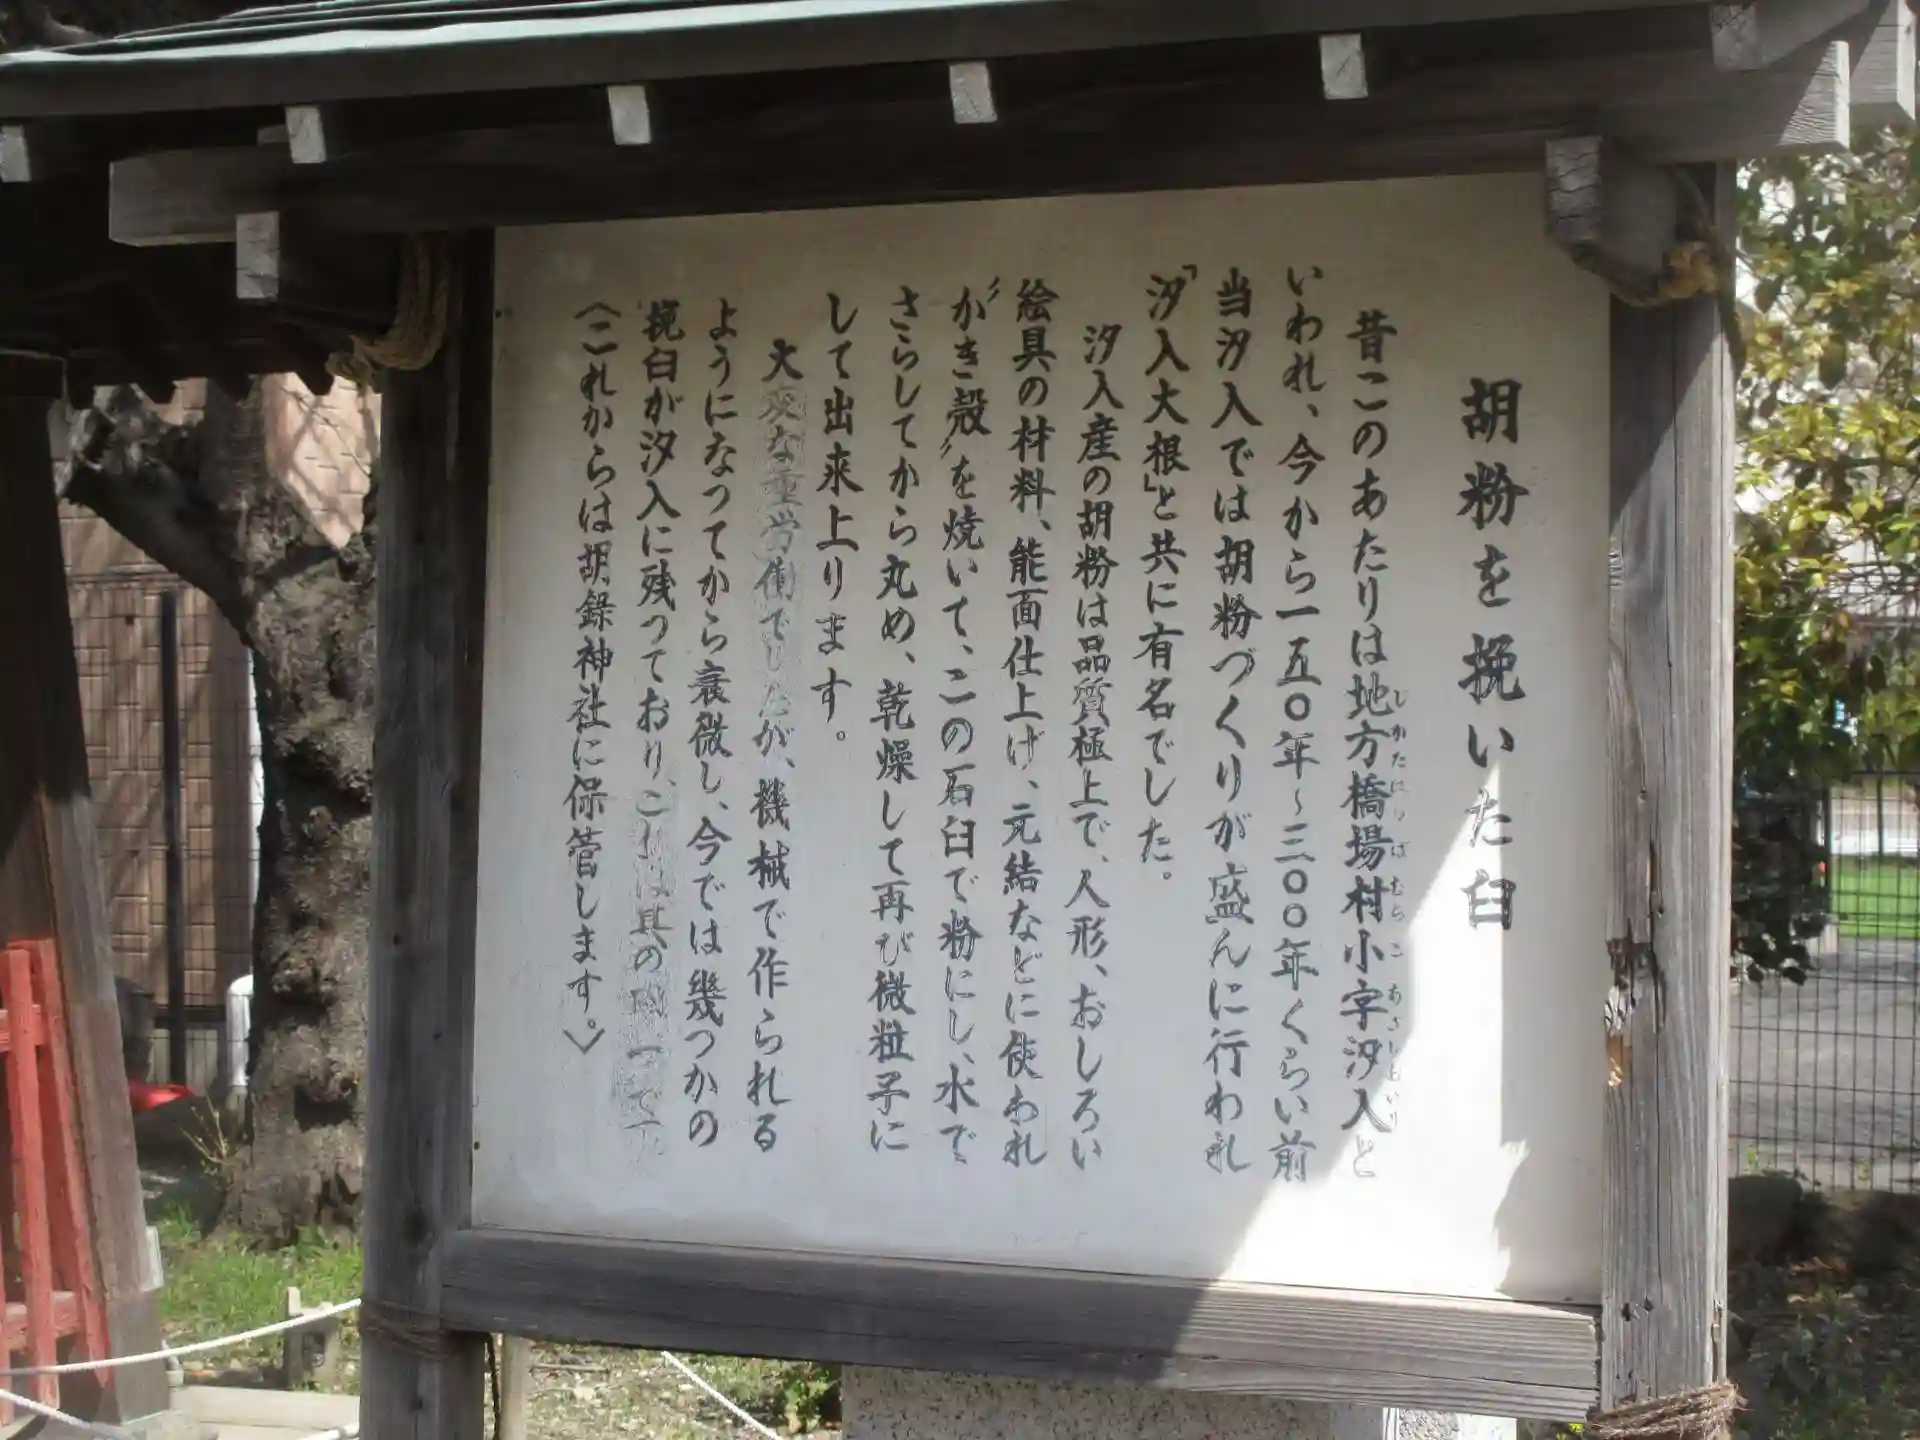 胡粉を挽いた臼
昔このあたりは地方橋場村小字汐入と
じかたはしばむらこあざしおいり
いわれ、今から一五〇年~三〇〇年くらい前
当汐入では胡粉づくりが盛んに行われ
「汐入大根」と共に有名でした。
汐入産の胡粉は品質極上で、人形、おしろい
絵具の材料、能面仕上げ、元結などに使われ
〝かき殻〟を焼いて、この石臼で粉にし、水で
さらしてから丸め、乾燥して再び微粒子に
して出来上ります。
大変な重労働でしたが、機械で作られる
ようになってから衰微し、今では幾つかの
挽臼が汐入に残っており、これは其の内一つです。
〈これからは胡録神社に保管します。〉